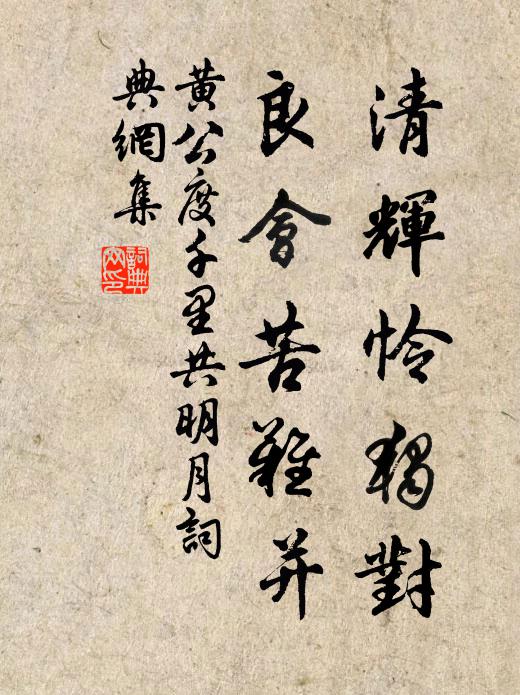 清輝怜獨對
良會苦難并
黃公度千里共明月詞
典網集
詞典网印